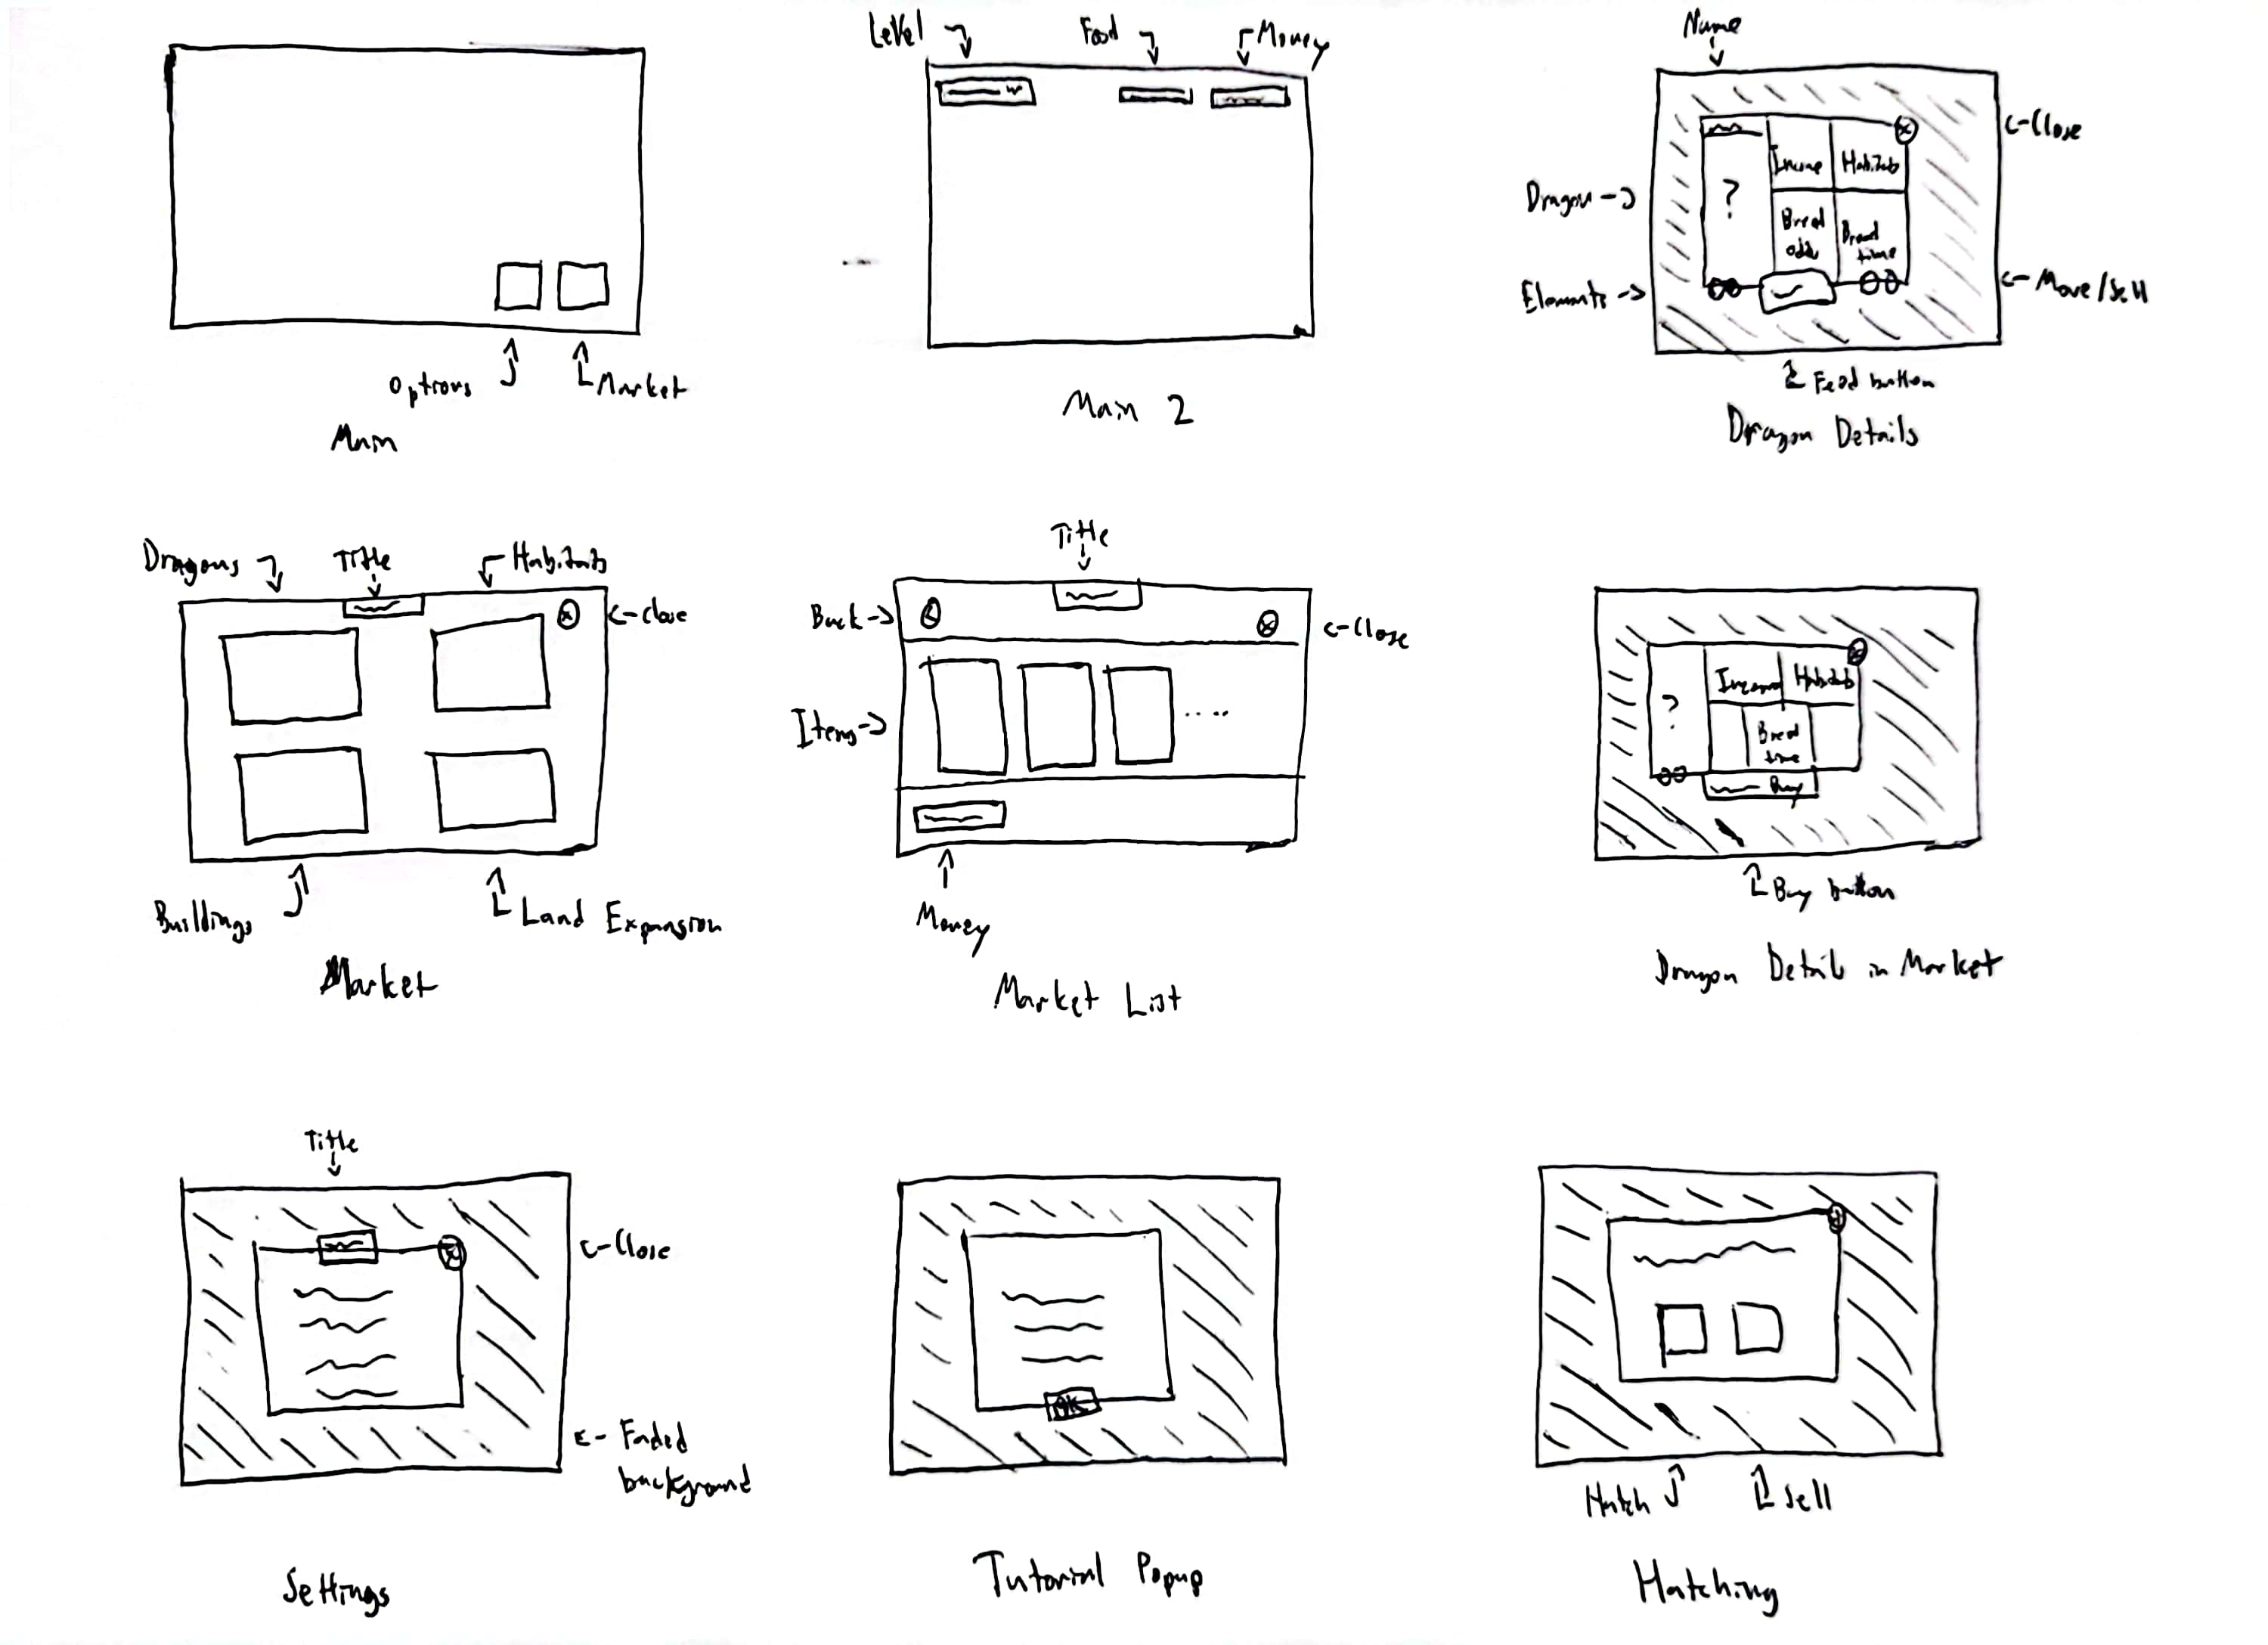 Options
Market
Main
Level
Food
Money
Main 2
Name
Close
Dragon
?
Income
Habitab
Breed
odds
Breed
time
Elements
Move/Sell
Feed button
Dragon Details
Dragons
Title
Habitats
Close
Buildings
Land Expansion
Market
Title
Back
Close
Items
.....
Money
Market List
?
Income
Habitab
Breed
time
Buy
Buy button
Dragon Details in Market
Title
Close
Faded
background
Settings
OK
Tutorial Popup
Hatch
Sell
Hatching